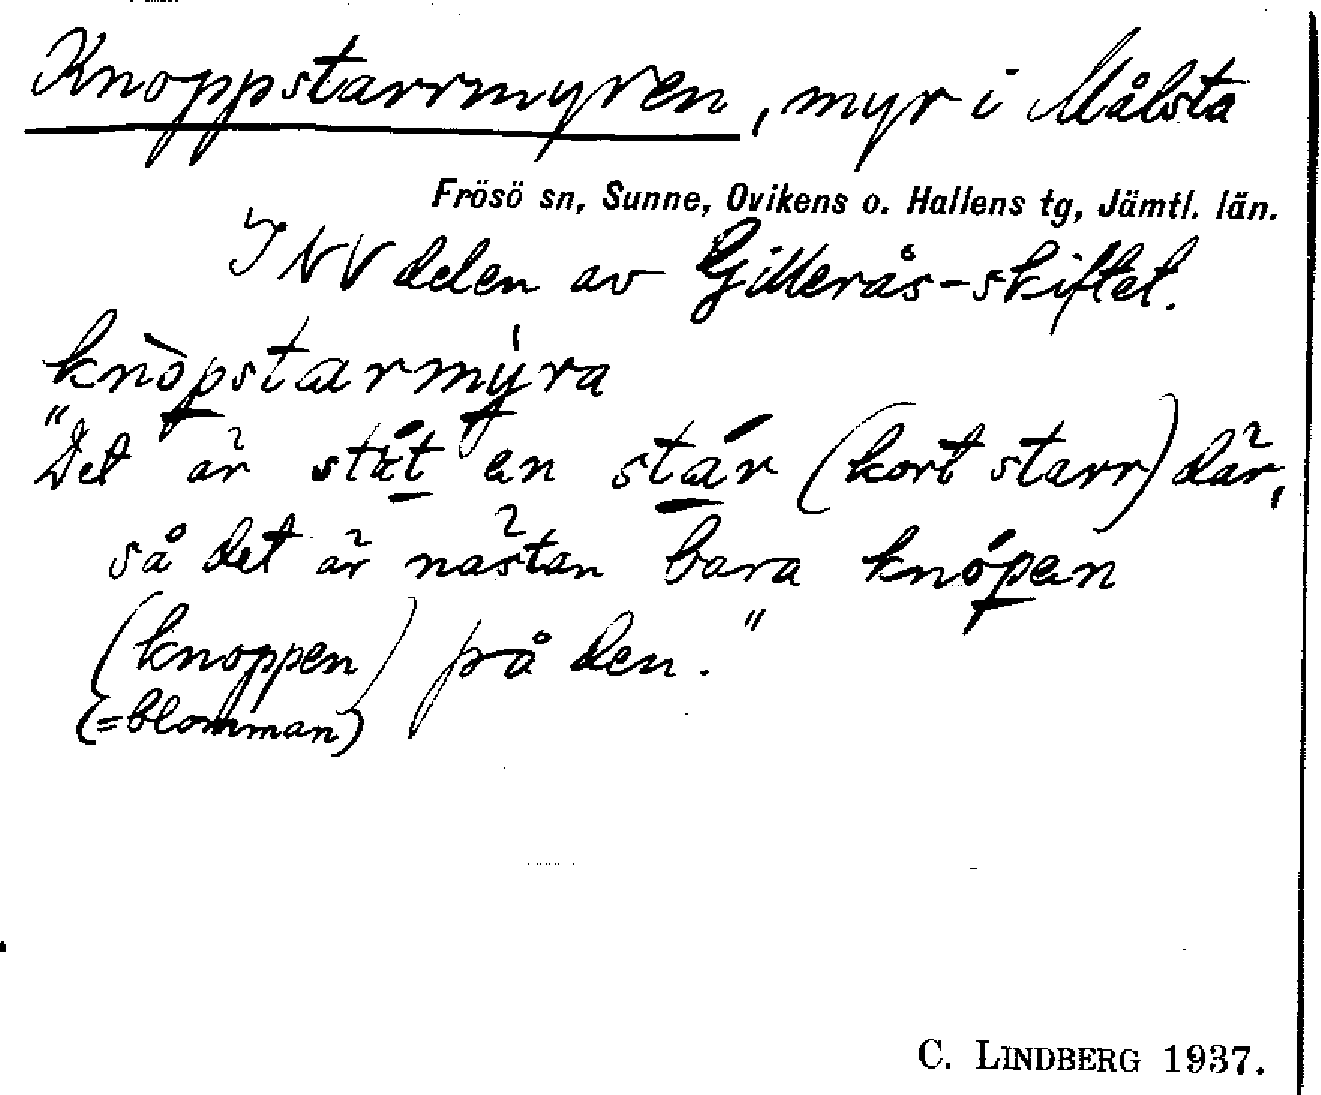 Knoppstarrmyren, myr i Målsta
Frösö sn, Sunne, Ovikens o. Hallens tg, Jämtl. län.
I NV delen av Gillerås-skiftet.
knòpstarmýra
"Det är stɩ́t en stár (kort starr) där,
så det är nästan bara knópan
(knoppen) på den."
(=blomman)
C. LINDBERG 1937.